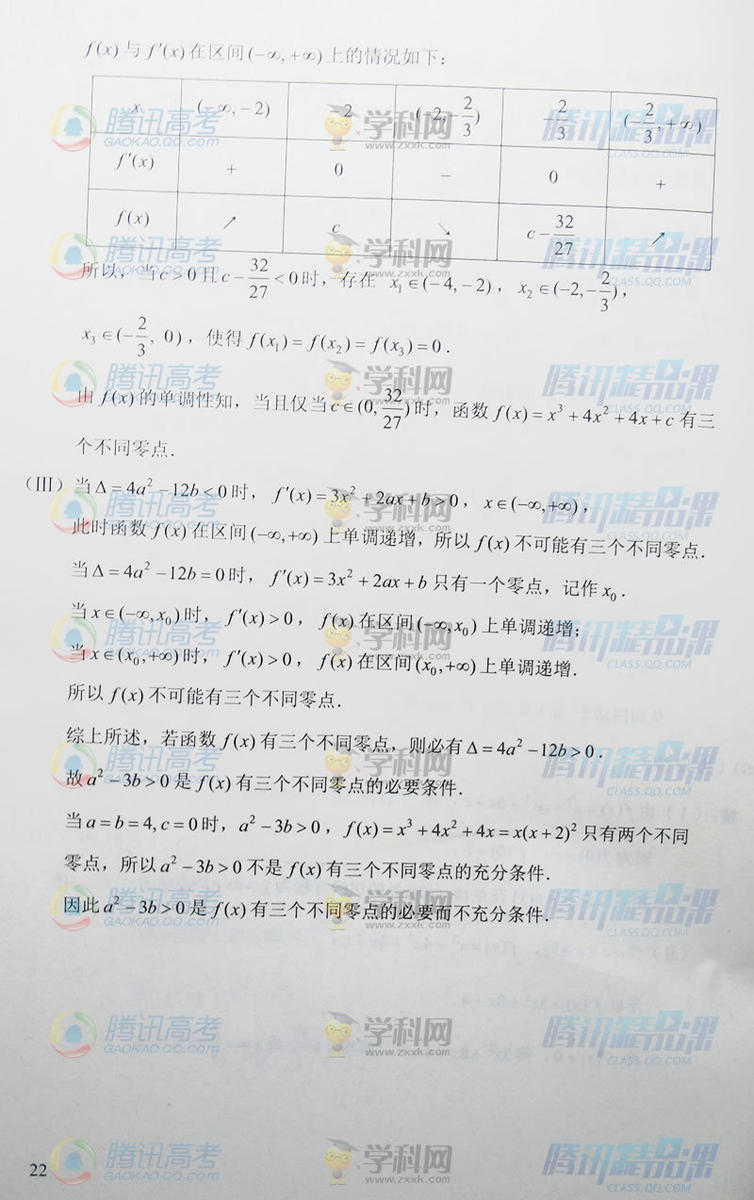 f(x) 与 f′(x) 在区间 (−∞, +∞) 上的情况如下：
x (−∞, −2) −2 (−2, −2/3) −2/3 (−2/3, +∞)
f′(x) + 0 − 0 +
f(x) ↗ c ↘ c − 32/27 ↗
所以，当 c > 0 且 c − 32/27 < 0 时，存在 x₁ ∈ (−4, −2)，x₂ ∈ (−2, −2/3)，
x₃ ∈ (−2/3, 0)，使得 f(x₁) = f(x₂) = f(x₃) = 0．
由 f(x) 的单调性知，当且仅当 c ∈ (0, 32/27) 时，函数 f(x) = x³ + 4x² + 4x + c 有三
个不同零点．
(Ⅲ) 当 Δ = 4a² − 12b < 0 时，f′(x) = 3x² + 2ax + b > 0，x ∈ (−∞, +∞)，
此时函数 f(x) 在区间 (−∞, +∞) 上单调递增，所以 f(x) 不可能有三个不同零点．
当 Δ = 4a² − 12b = 0 时，f′(x) = 3x² + 2ax + b 只有一个零点，记作 x₀．
当 x ∈ (−∞, x₀) 时，f′(x) > 0，f(x) 在区间 (−∞, x₀) 上单调递增；
当 x ∈ (x₀, +∞) 时，f′(x) > 0，f(x) 在区间 (x₀, +∞) 上单调递增．
所以 f(x) 不可能有三个不同零点．
综上所述，若函数 f(x) 有三个不同零点，则必有 Δ = 4a² − 12b > 0．
故 a² − 3b > 0 是 f(x) 有三个不同零点的必要条件．
当 a = b = 4, c = 0 时，a² − 3b > 0，f(x) = x³ + 4x² + 4x = x(x + 2)² 只有两个不同
零点，所以 a² − 3b > 0 不是 f(x) 有三个不同零点的充分条件．
因此 a² − 3b > 0 是 f(x) 有三个不同零点的必要而不充分条件．
22
腾讯高考
GAOKAO.QQ.com
学科网
www.zxxk.com
腾讯精品课
CLASS.QQ.COM